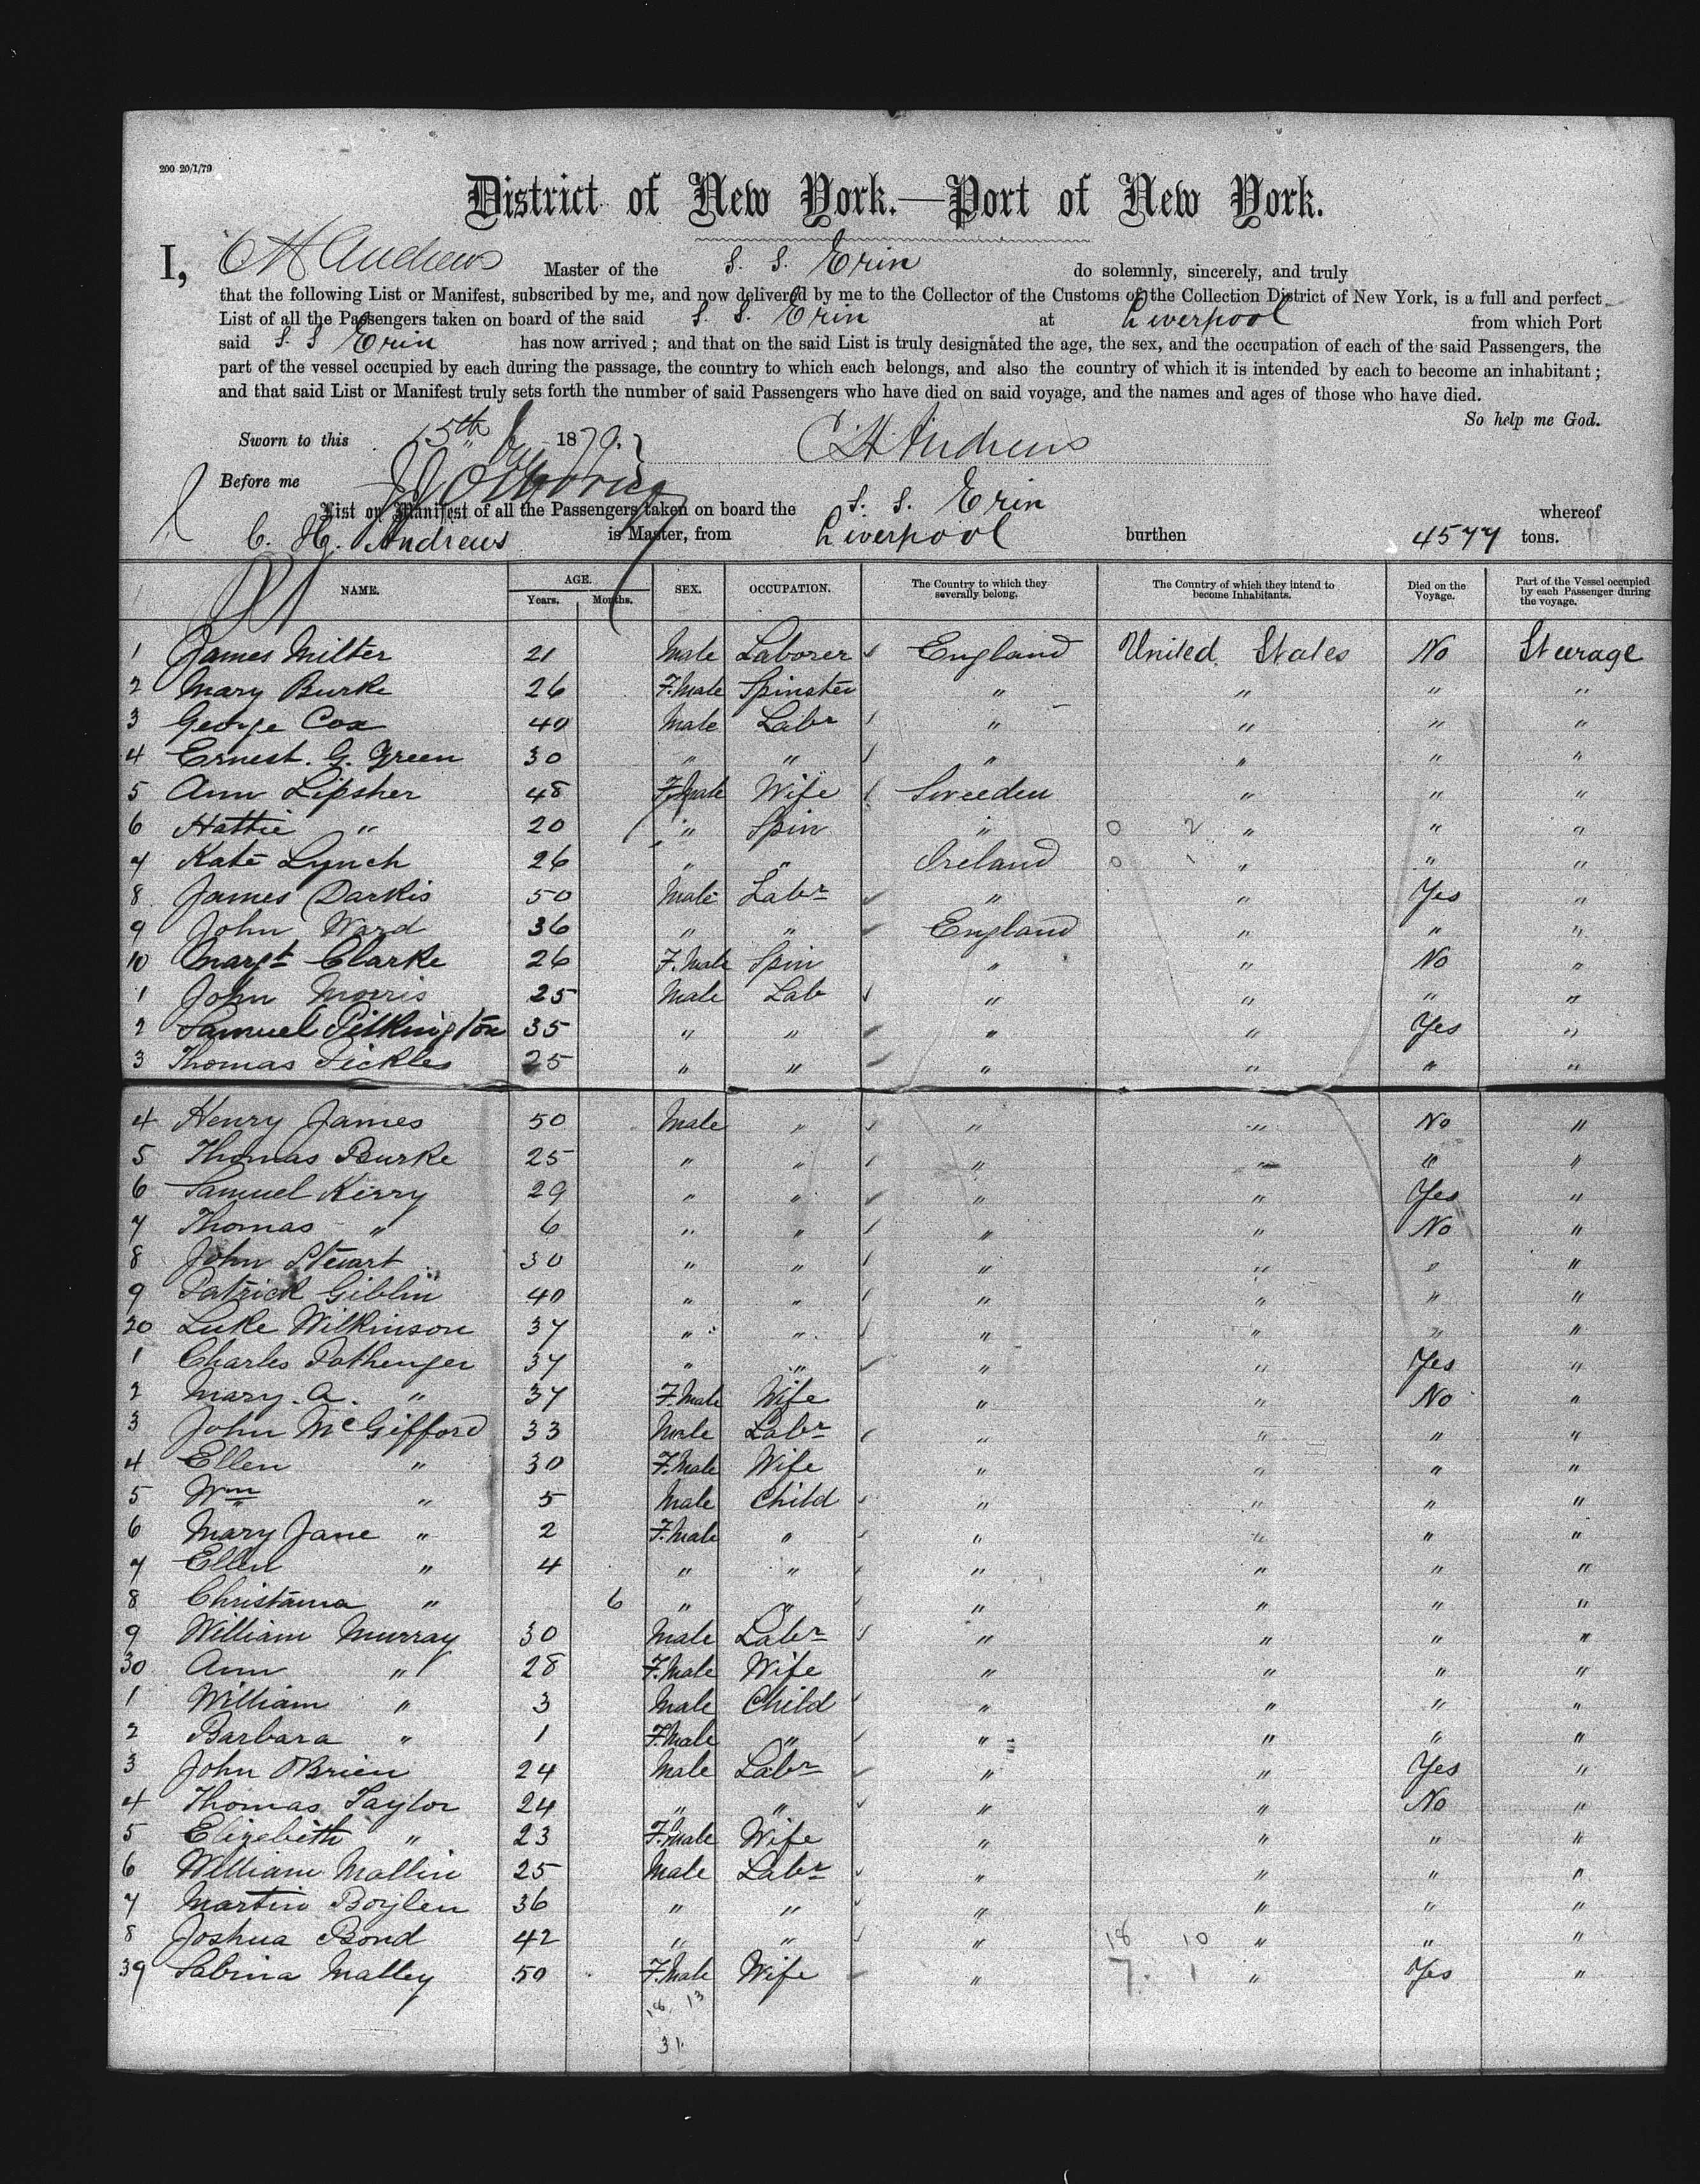 200 20/1/79
District of New York.—Port of New York.
I, C H Andrews Master of the S. S. Erin do solemnly, sincerely, and truly
that the following List or Manifest, subscribed by me, and now delivered by me to the Collector of the Customs of the Collection District of New York, is a full and perfect
List of all the Passengers taken on board of the said S. S. Erin at Liverpool from which Port
said S. S Erin has now arrived; and that on the said List is truly designated the age, the sex, and the occupation of each of the said Passengers, the
part of the vessel occupied by each during the passage, the country to which each belongs, and also the country of which it is intended by each to become an inhabitant;
and that said List or Manifest truly sets forth the number of said Passengers who have died on said voyage, and the names and ages of those who have died.
So help me God.
Sworn to this 15th 1879. C H Andrews
Before me
List or Manifest of all the Passengers taken on board the S. S. Erin whereof
C. H. Andrews is Master, from Liverpool burthen 4577 tons.
NAME. AGE. Years. Months. SEX. OCCUPATION. The Country to which they severally belong. The Country of which they intend to become Inhabitants. Died on the Voyage. Part of the Vessel occupied by each Passenger during the voyage.
1 James Milter 21 Male Laborer England United States No Steerage
2 Mary Burke 26 F.Male Spinster " " " "
3 George Cox 40 Male Labr " " " "
4 Ernest. G. Green 30 " " " " " "
5 Ann Lipsher 48 F.Male Wife Sweeden " " "
6 Hattie " 20 " Spin " 0 2 " " "
7 Kate Lynch 26 " " Ireland 0 1 " " "
8 James Darkis 50 Male Labr " " Yes "
9 John Ward 36 " " England " " "
10 Margt Clarke 26 F.Male Spin " " No "
1 John Morris 25 Male Lab " " " "
2 Samuel Pilkington 35 " " " " Yes "
3 Thomas Pickles 25 " " " " " "
4 Henry James 50 Male " " " No "
5 Thomas Burke 25 " " " " " "
6 Samuel Kerry 29 " " " " Yes "
7 Thomas " 6 " " " " No "
8 John Stewart 30 " " " " " "
9 Patrick Giblin 40 " " " " " "
20 Luke Wilkinson 37 " " " " " "
1 Charles Pothenger 37 " " " " Yes "
2 Mary. A. " 37 F.Male Wife " " No "
3 John McGifford 33 Male Labr " " " "
4 Ellen " 30 F.Male Wife " " " "
5 Wm " 5 Male Child " " " "
6 Mary Jane " 2 F.Male " " " " "
7 Ellen " 4 " " " " " "
8 Christiana " 6 " " " " " "
9 William Murray 30 Male Labr " " " "
30 Ann " 28 F.Male Wife " " " "
1 William " 3 Male Child " " " "
2 Barbara " 1 F.Male " " " " "
3 John OBrien 24 Male Labr " " Yes "
4 Thomas Taylor 24 " " " " No "
5 Elizebeth " 23 F.Male Wife " " " "
6 William Mallin 25 Male Labr " " " "
7 Martin Boylen 36 " " " " " "
8 Joshua Bond 42 " " " 18 10 " " "
39 Sabina Malley 50 F.Male Wife " 7. 1 " Yes "
18 13
31